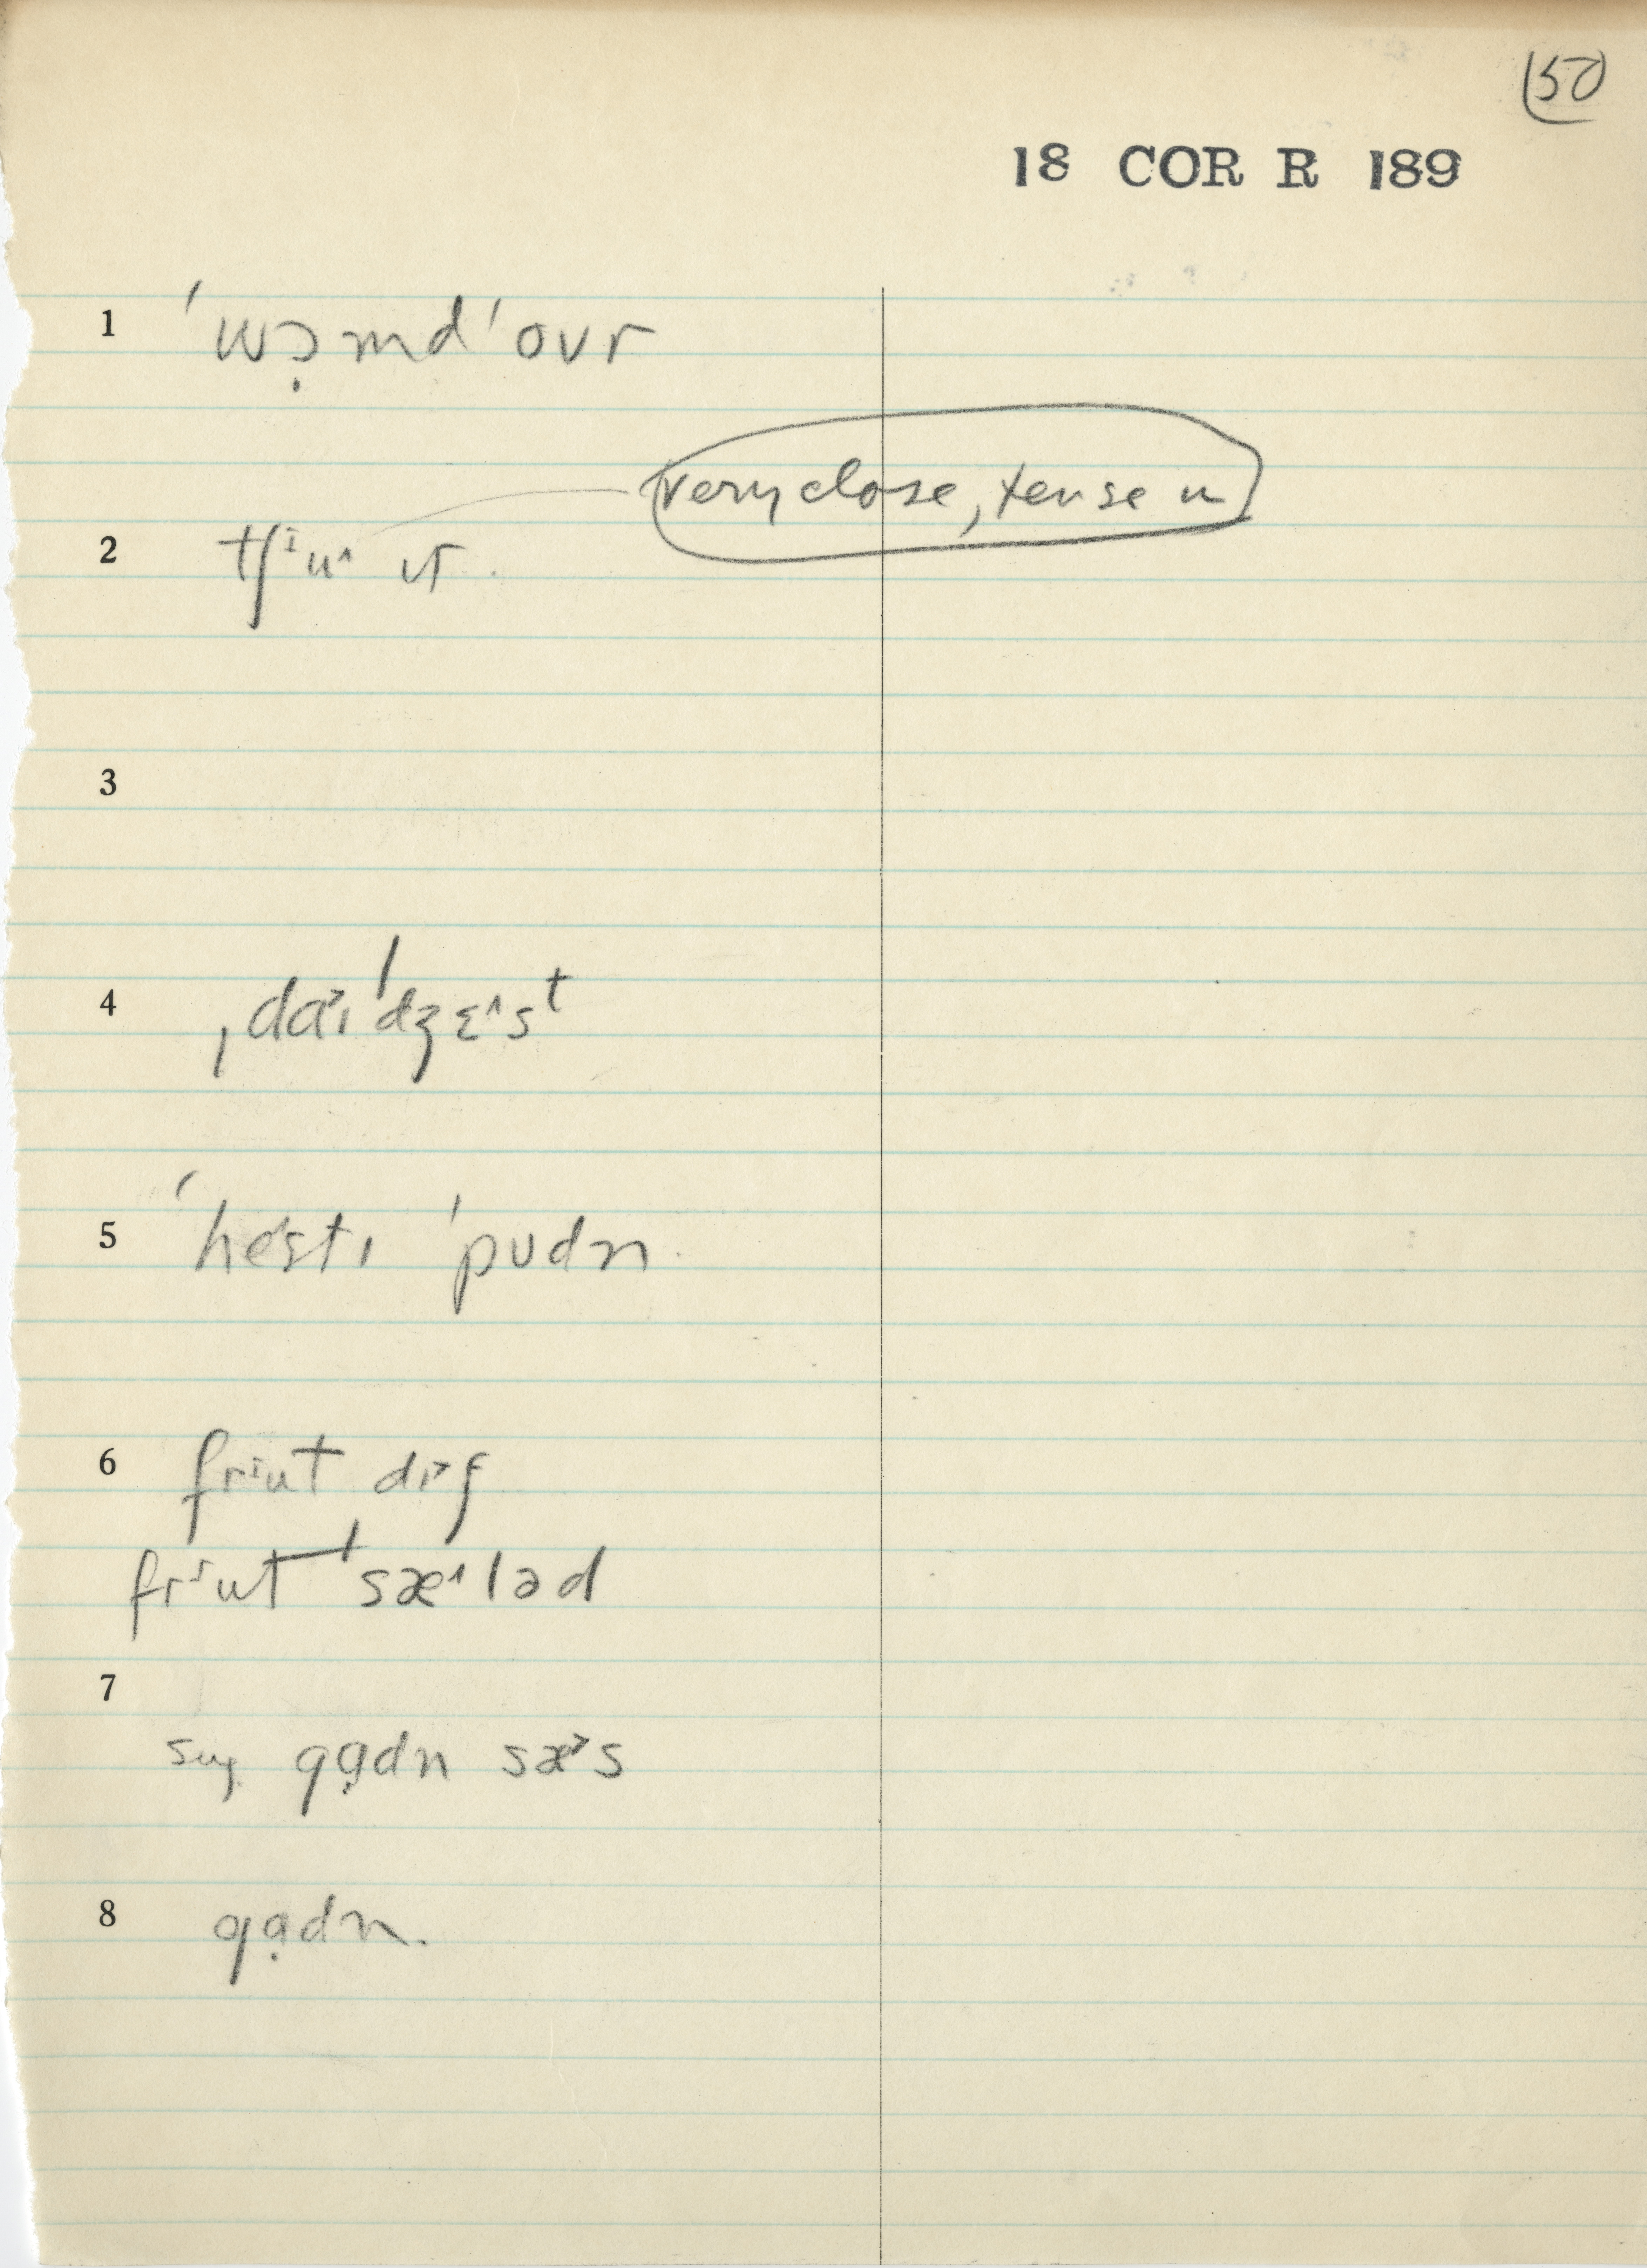 (50)
18 COR R 189
1 ˈwɔ̣md ˈovr
very close, tense u
2 tʃᶦu^ ɪt.
3
4 ˌdaɪˈdʒɛ^st
5 ˈhestɪ ˈpʊdn
6 frᶦut dɪ>ʃ
frᶦut ˈsæ^ləd
7
sug. gɑ̣dn sæ>s
8 gɑ̣dn.